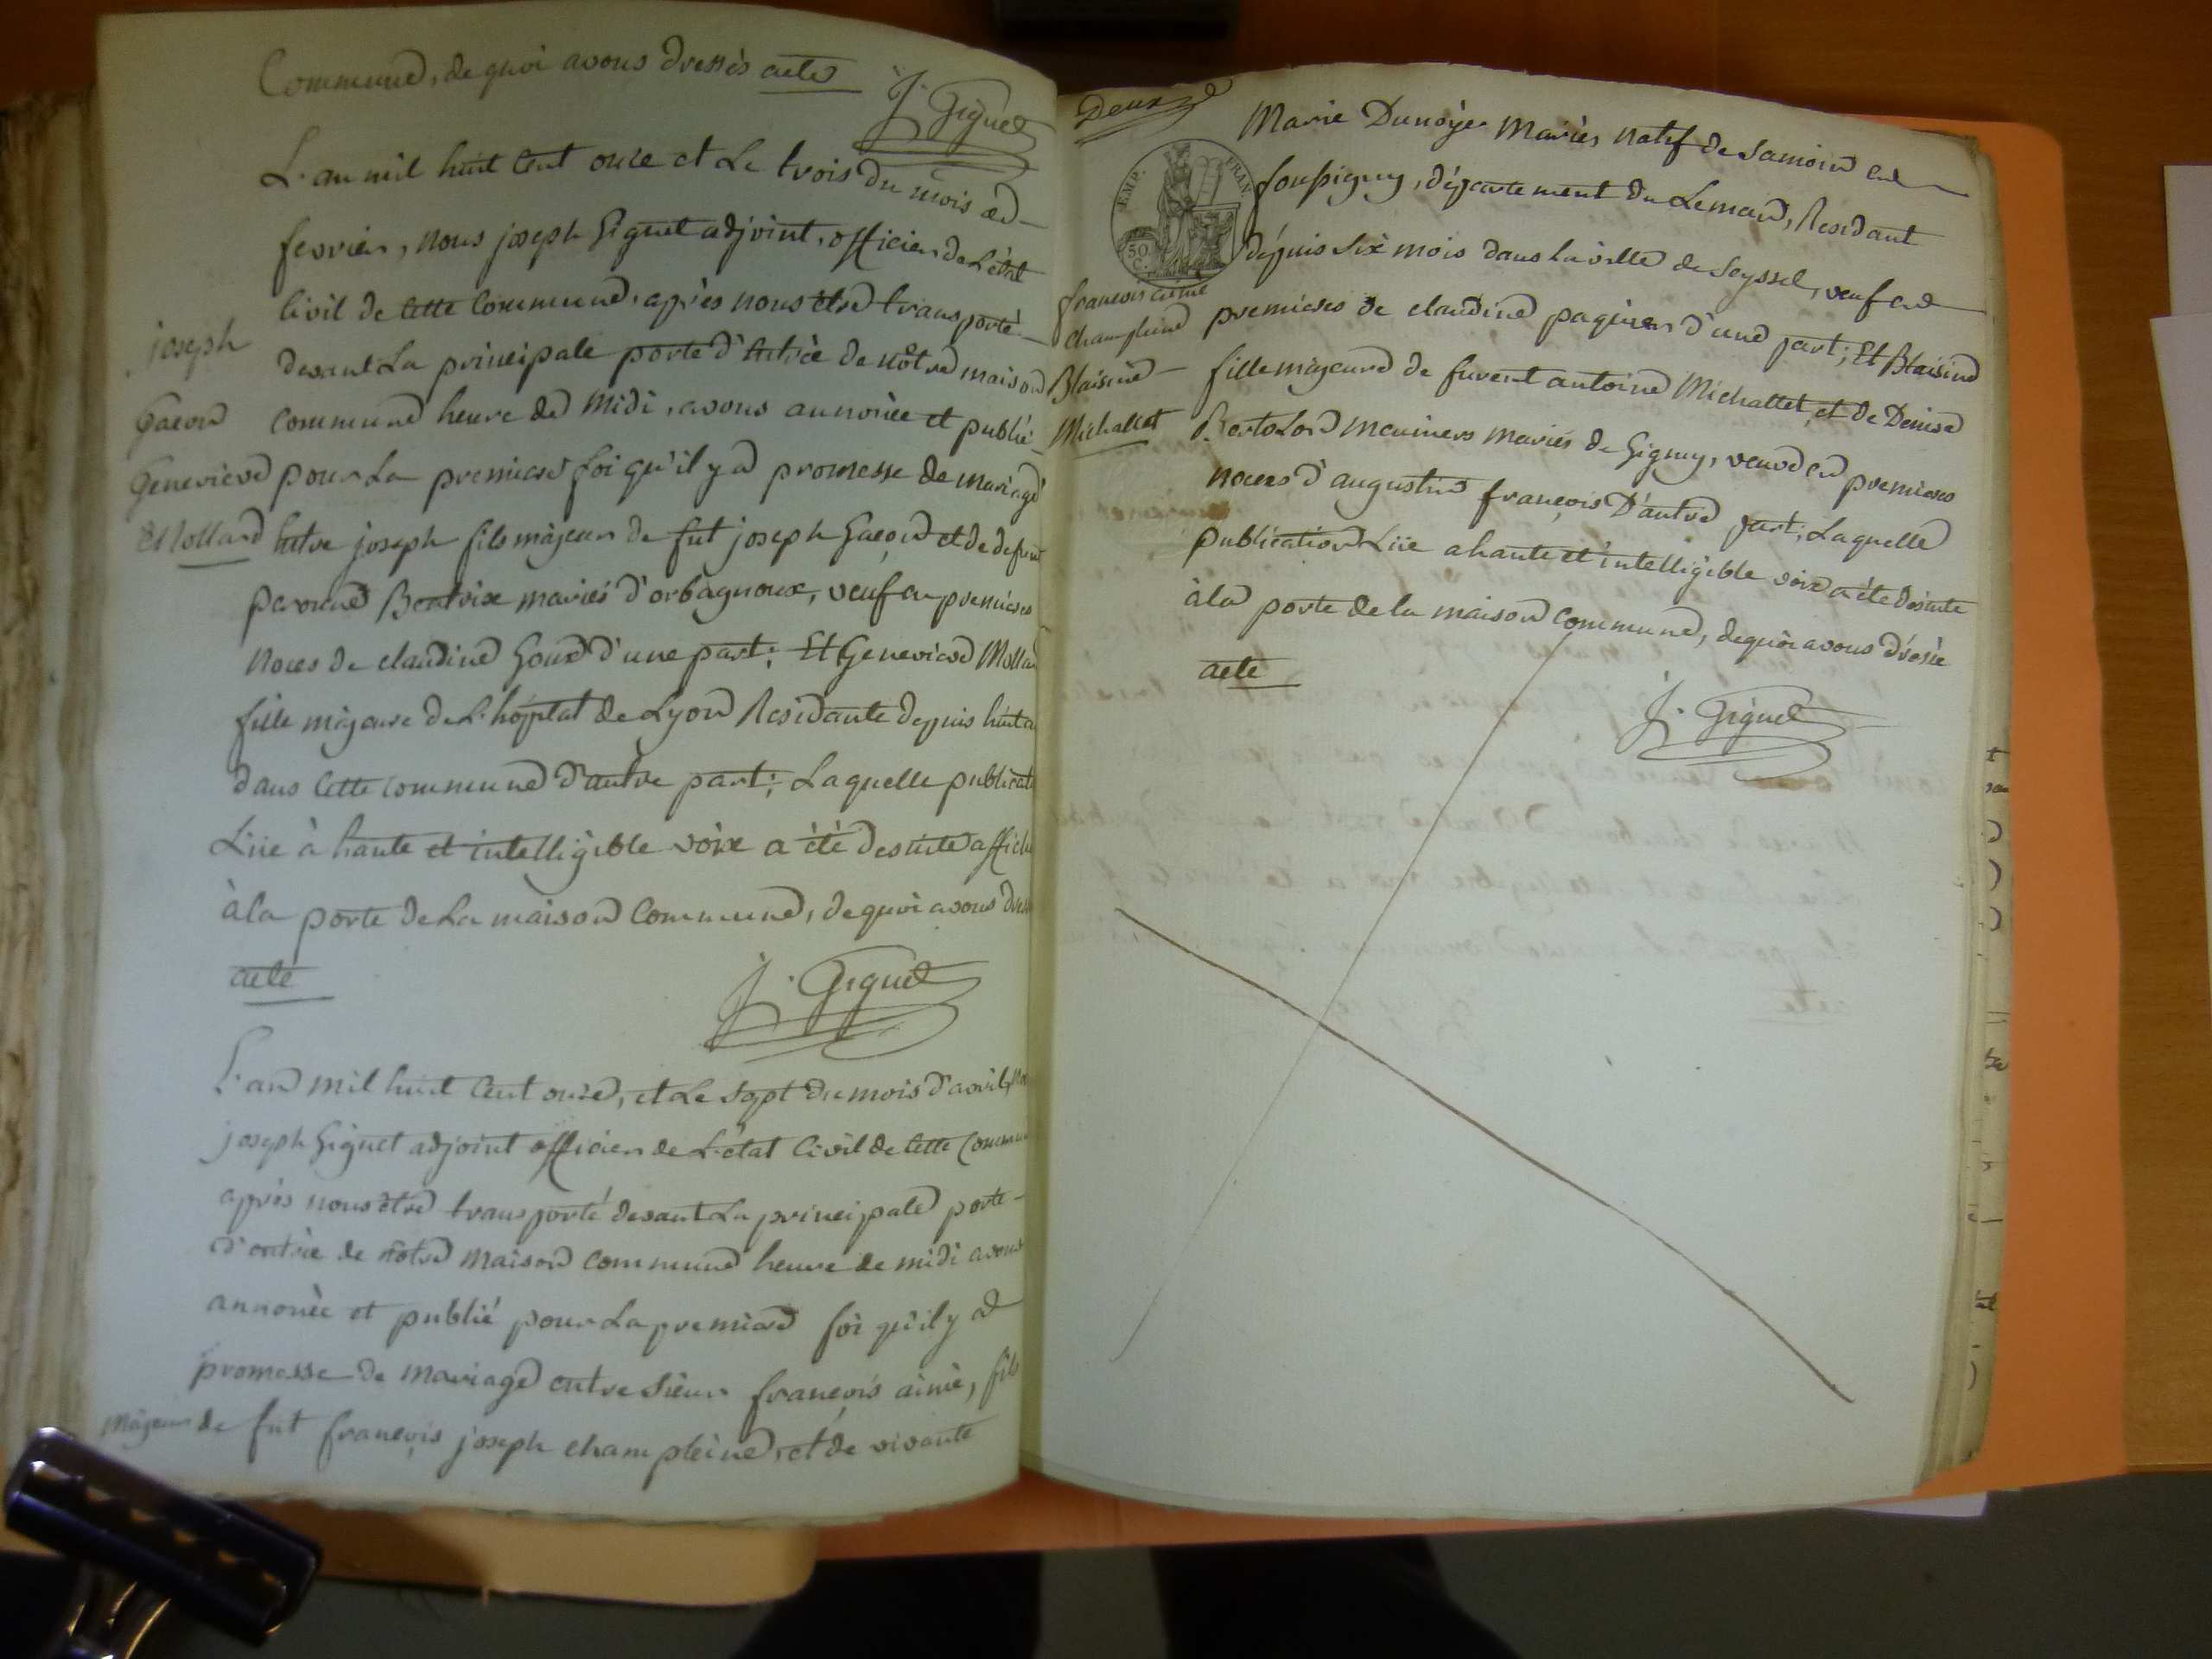 Commune, de quoi avons dressés acte
J. Giguet
L'an mil huit Cent onze et Le trois du mois de
fevrier, nous joseph Giguet adjoint, officier de L'état
Civil de Cette Commune, après nous être transporté
devant La principale porte d'entrée de nôtre maison
commune heure de Midi, avons annoncée et publié
pour La premiere foi qu'il y a promesse de mariage
Entre joseph fils màjeur de fut joseph Gacon et de defunte
pernone Beatrix mariés d'orbagnoux, veuf en premieres
noces de claudine Goux d'une part; Et Genevieve Mollard
fille màjeure de L'hôpital de Lyon Residante depuis huit a
dans Cette commune d'autre part; Laquelle publicat
Lüe à haute et intelligible vóix a été desuite affich
à la porte de La maison Commune, de quoi avons dres
acte
J. Giguet
joseph
Gacon
Genevieve
Mollard
L'an mil huit Cent onze, et Le sept du mois d'avril, no
joseph Giguet adjoint officier de L'état Civil de Cette Commu
après nous être transporté devant La principale porte
d'entrée de nôtre maison commune heure de midi avons
annoncée et publié pour La premiere foi qu'il y a
promesse de mariage entre Sieur françois aimé, fils
màjeur de fut françois joseph champleine, et de vivante
Deux
EMP. FRAN.
50 C.
Marie Dunoyer Mariés natif de Samoin en
fousigny, département du Leman, Residant
dépuis Six mois dans La ville de Seyssel, veuf en
premieres de claudine paquier d'une part; Et Blaisine
fille màjeure de furent antoine Michallet, et de Denise
Bertolon meuniers mariés de Gigny, veuve en premieres
noces d'augustin françois D'autre part; Laquelle
publication Lüe a haute et intelligible voix a été desuite
à la porte de la maison Commune, de quoi avons drésée
acte
J. Giguet
francois aimé
champleine
Blaisine
Michallet